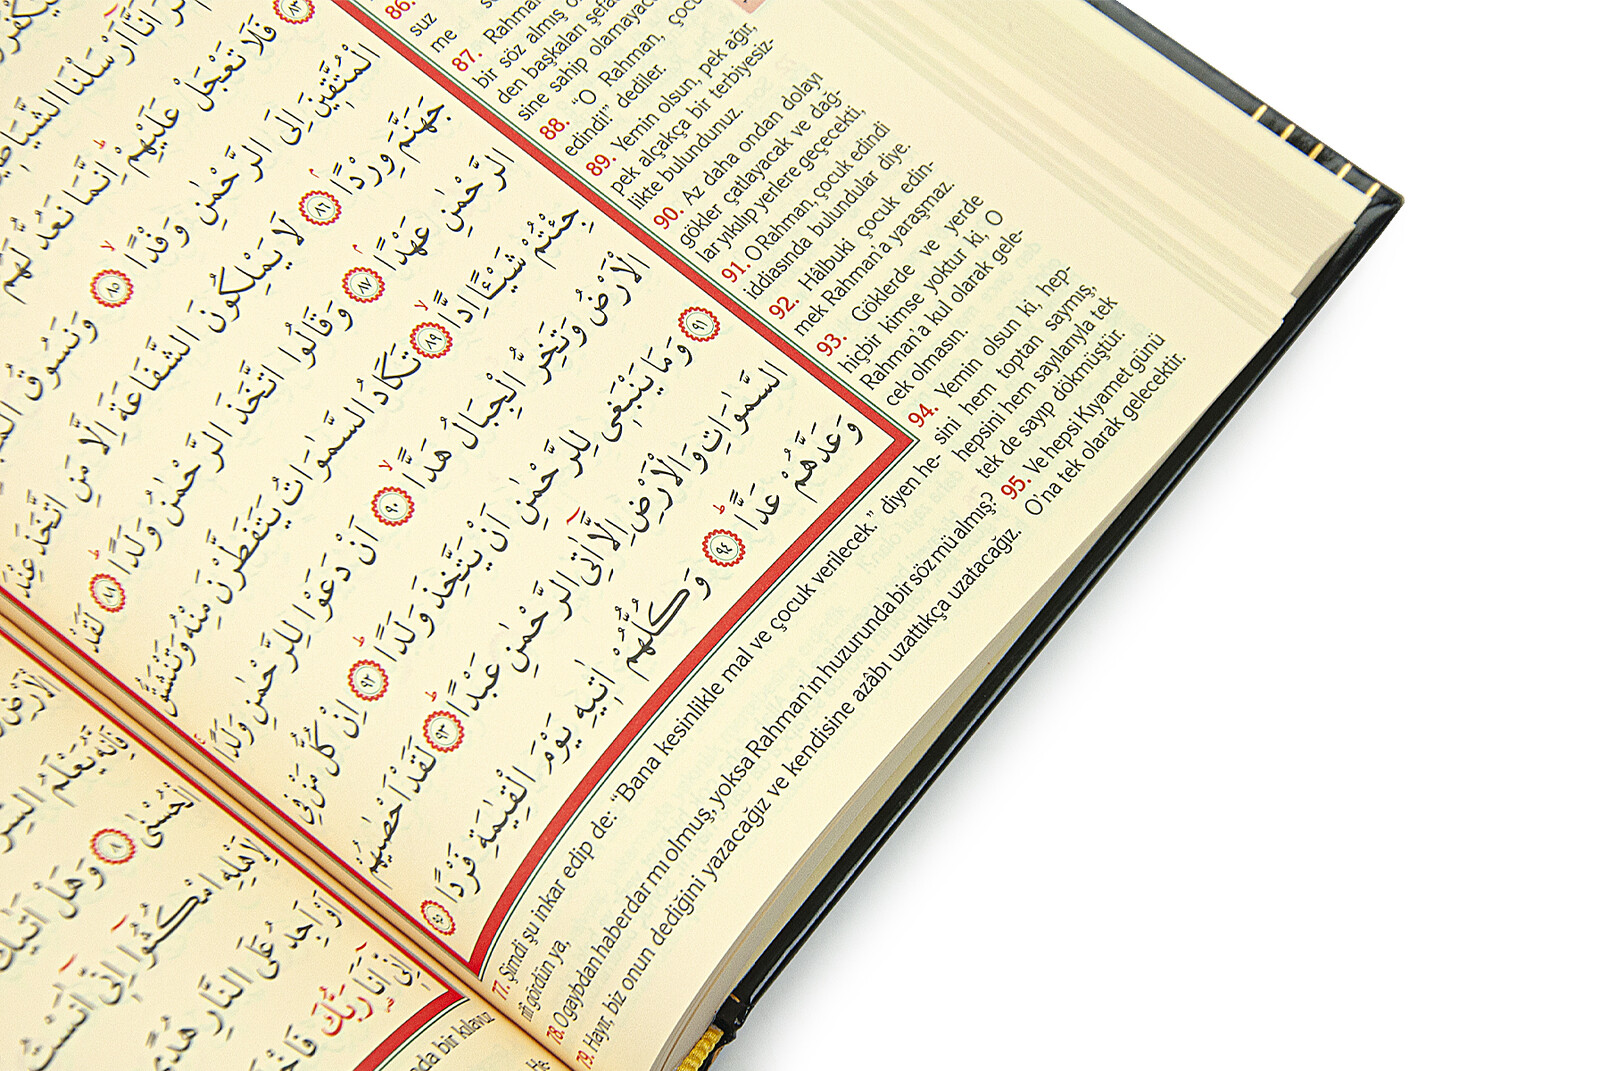 اَنَّٓا اَرْسَلْنَا الشَّيَاطِينَ
٨٣ فَلَا تَعْجَلْ عَلَيْهِمْ اِنَّمَا نَعُدُّ لَهُمْ
الْمُتَّقِينَ اِلَى الرَّحْمٰنِ وَفْدًا ٨٥ وَنَسُوقُ
جَهَنَّمَ وِرْدًا ٨٦ لَا يَمْلِكُونَ الشَّفَاعَةَ اِلَّا مَنِ اتَّخَذَ عِنْدَ
الرَّحْمٰنِ عَهْدًا ٨٧ وَقَالُوا اتَّخَذَ الرَّحْمٰنُ وَلَدًا ٨٨ لَقَدْ
جِئْتُمْ شَيْـًٔا اِدًّا ٨٩ تَكَادُ السَّمٰوَاتُ يَتَفَطَّرْنَ مِنْهُ وَتَنْشَقُّ
الْاَرْضُ وَتَخِرُّ الْجِبَالُ هَدًّا ٩٠ اَنْ دَعَوْا لِلرَّحْمٰنِ وَلَدًا
٩١ وَمَا يَنْبَغِي لِلرَّحْمٰنِ اَنْ يَتَّخِذَ وَلَدًا ٩٢ اِنْ كُلُّ مَنْ فِي
السَّمٰوَاتِ وَالْاَرْضِ اِلَّٓا اٰتِي الرَّحْمٰنِ عَبْدًا ٩٣ لَقَدْ اَحْصٰيهُمْ
وَعَدَّهُمْ عَدًّا ٩٤ وَكُلُّهُمْ اٰتِيهِ يَوْمَ الْقِيٰمَةِ فَرْدًا ٩٥
86.
suz
me
87. Rahman
bir söz almış
den başkaları şefa
sine sahip olamayac
88. "O Rahman, çocu
edindi!" dediler.
89. Yemin olsun, pek ağır,
pek alçakça bir terbiyesiz-
likte bulundunuz.
90. Az daha ondan dolayı
gökler çatlayacak ve dağ-
lar yıkılıp yerlere geçecekti,
91. O Rahman, çocuk edindi
iddiasında bulundular diye.
92. Hâlbuki çocuk edin-
mek Rahman'a yaraşmaz.
93. Göklerde ve yerde
hiçbir kimse yoktur ki, O
Rahman'a kul olarak gele-
cek olmasın.
94. Yemin olsun ki, hep-
sini hem toptan saymış,
hepsini hem sayılarıyla tek
tek de sayıp dökmüştür.
95. Ve hepsi Kıyamet günü
O'na tek olarak gelecektir.
77. Şimdi şu inkar edip de: "Bana kesinlikle mal ve çocuk verilecek." diyen he-
rifi gördün ya,
78. O gaybdan haberdar mı olmuş, yoksa Rahman'ın huzurunda bir söz mü almış?
79. Hayır, biz onun dediğini yazacağız ve kendisine azâbı uzattıkça uzatacağız.
الْاَرْضِ
فَاِنَّهُ يَعْلَمُ السِّرَّ
الْحُسْنٰى ٨ وَهَلْ اَتٰيكَ
لِاَهْلِهِ امْكُثُٓوا اِنِّٓي اٰنَسْتُ
اَوْ اَجِدُ عَلَى النَّارِ هُدًى
اِنِّٓي اَنَا رَبُّكَ فَاخْ
nda bir kılavu
He-